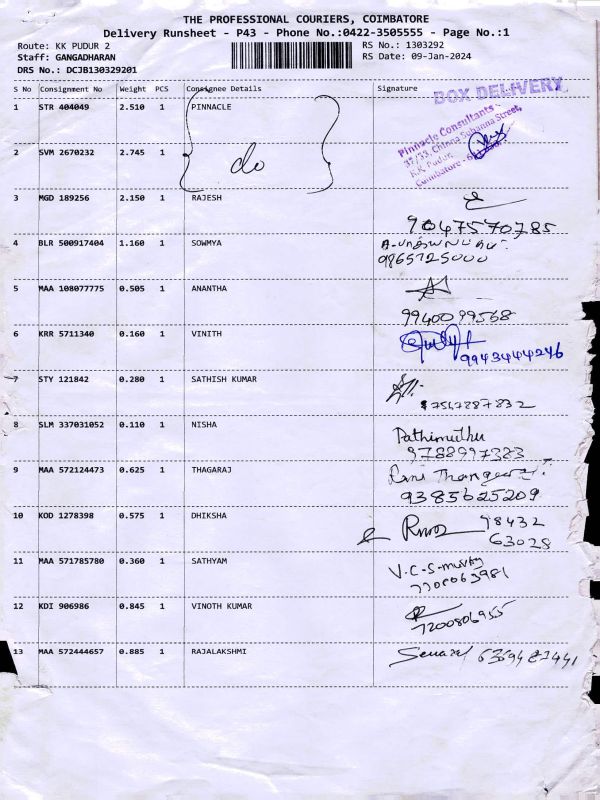 THE PROFESSIONAL COURIERS, COIMBATORE
Delivery Runsheet - P43 - Phone No.:0422-3505555 - Page No.:1
Route: KK PUDUR 2 RS No.: 1303292
Staff: GANGADHARAN RS Date: 09-Jan-2024
DRS No.: DCJB130329201
S No Consignment No Weight PCS Consignee Details Signature
BOX DELIVERY
1 STR 404049 2.510 1 PINNACLE
Pinnacle Consultants
37/33, Chinna Subanna Street,
K.K. Pudur,
Coimbatore -
2 SVM 2670232 2.745 1 do
3 MGD 189256 2.150 1 RAJESH
9047570785
4 BLR 500917404 1.160 1 SOWMYA
9865725000
5 MAA 108077775 0.505 1 ANANTHA
9940099568
6 KRR 5711340 0.160 1 VINITH
9943444246
7 STY 121842 0.280 1 SATHISH KUMAR
8 SLM 337031052 0.110 1 NISHA
Pathimuthu
9788997383
9 MAA 572124473 0.625 1 THAGARAJ
9385625209
10 KOD 1278398 0.575 1 DHIKSHA
78432
63028
11 MAA 571785780 0.360 1 SATHYAM
V.C-S-murthy
7708063981
12 KDI 906986 0.845 1 VINOTH KUMAR
7200806955
13 MAA 572444657 0.885 1 RAJALAKSHMI